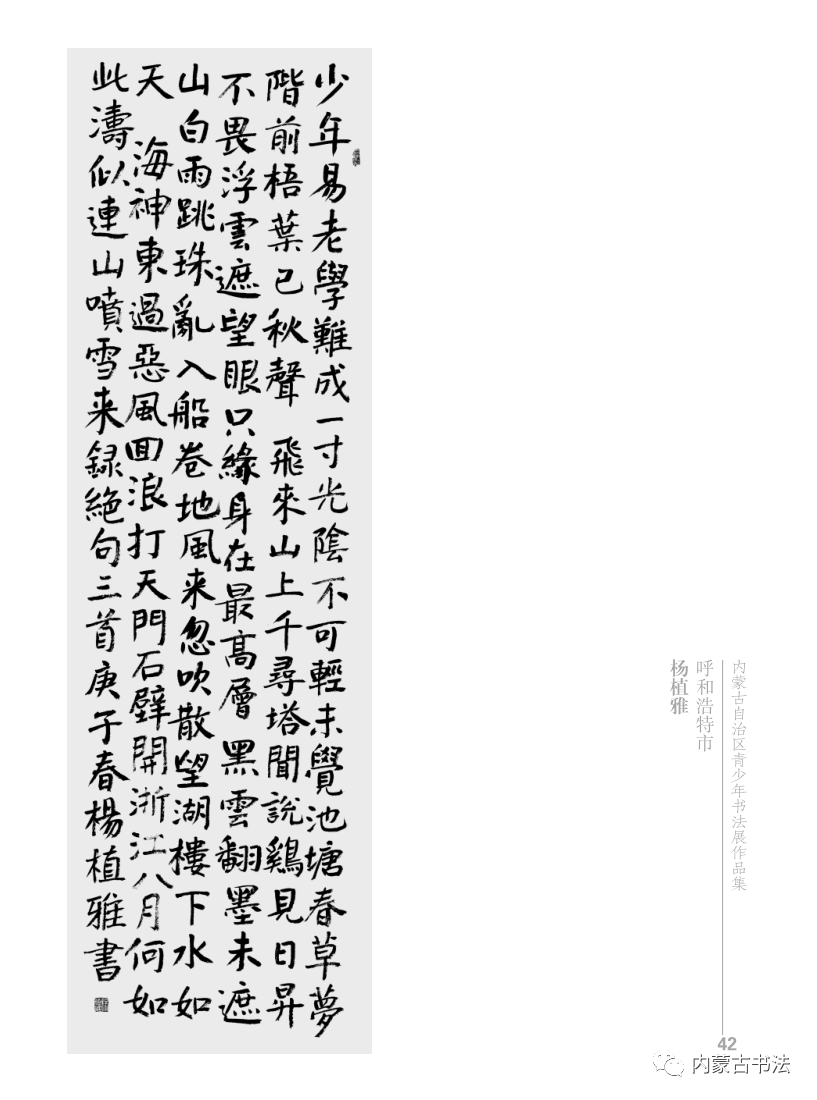 少年易老學難成一寸光陰不可輕未覺池塘春草夢
階前梧葉已秋聲 飛來山上千尋塔聞說鷄見日昇
不畏浮雲遮望眼只緣身在最高層 黑雲翻墨未遮
山白雨跳珠亂入船卷地風来忽吹散望湖樓下水如
天 海神東過惡風回浪打天門石壁開浙江八月何如
此濤似連山噴雪来録絶句三首庚子春楊植雅書
内蒙古自治区青少年书法展作品集
呼和浩特市
杨植雅
42
内蒙古书法